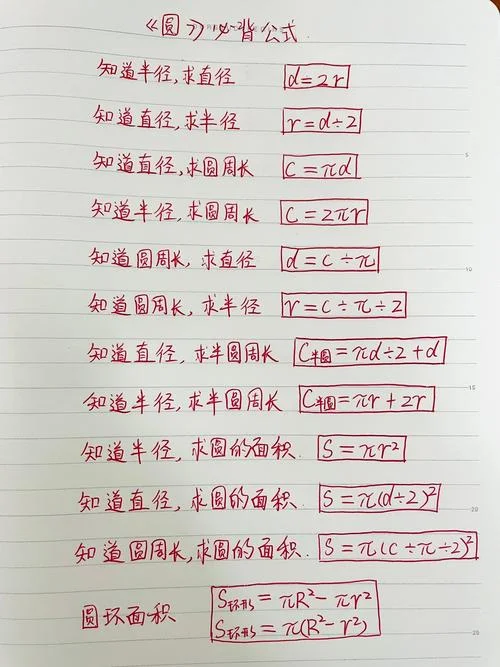 《圆》必背公式
知道半径,求直径 d=2r
知道直径,求半径 r=d÷2
知道直径,求圆周长 C=πd
知道半径,求圆周长 C=2πr
知道圆周长,求直径 d=C÷π
知道圆周长,求半径 r=C÷π÷2
知道直径,求半圆周长 C半圆=πd÷2+d
知道半径,求半圆周长 C半圆=πr+2r
知道半径,求圆的面积. S=πr²
知道直径,求圆的面积. S=π(d÷2)²
知道圆周长,求圆的面积. S=π(C÷π÷2)²
圆环面积 S环形=πR²-πr²
S环形=π(R²-r²)
5
10
15
20
25